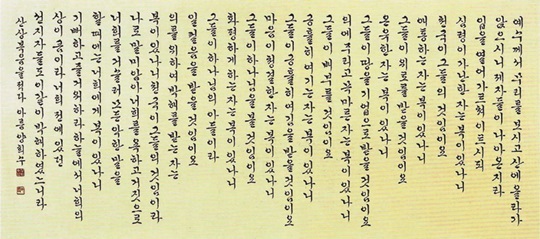 예수께서 무리를 보시고 산에 올라가
앉으시니 제자들이 나아온지라
입을 열어 가르쳐 이르시되
심령이 가난한 자는 복이 있나니
천국이 그들의 것임이요
애통하는 자는 복이 있나니
그들이 위로를 받을 것임이요
온유한 자는 복이 있나니
그들이 땅을 기업으로 받을 것임이요
의에 주리고 목마른 자는 복이 있나니
그들이 배부를 것임이요
긍휼히 여기는 자는 복이 있나니
그들이 긍휼히 여김을 받을 것임이요
마음이 청결한 자는 복이 있나니
그들이 하나님을 볼 것임이요
화평하게 하는 자는 복이 있나니
그들이 하나님의 아들이라
일컬음을 받을 것임이요
의를 위하여 박해를 받는 자는
복이 있나니 천국이 그들의 것임이라
나로 말미암아 너희를 욕하고 거짓으로
너희를 거슬러 모든 악한 말을
할 때에는 너희에게 복이 있나니
기뻐하고 즐거워하라 하늘에서 너희의
상이 큼이라 너희 전에 있던
선지자들도 이같이 박해하였느니라
산상복음을 적다 아름